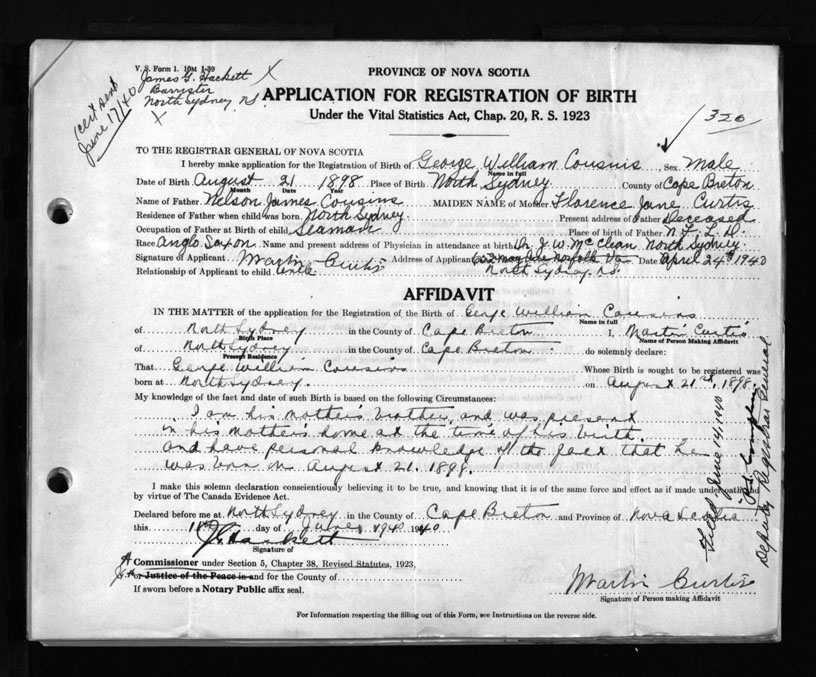 V. S. Form 1. 10M 1-39
James G. Hackett X
Barrister
North Sydney NS
X
cert sent
June 17/40
PROVINCE OF NOVA SCOTIA
APPLICATION FOR REGISTRATION OF BIRTH
Under the Vital Statistics Act, Chap. 20, R. S. 1923
320
TO THE REGISTRAR GENERAL OF NOVA SCOTIA
I hereby make application for the Registration of Birth of George William Cousins, Sex Male
Name in full
Date of Birth August 21 1898 Place of Birth North Sydney County of Cape Breton
Month Date Year
Name of Father Nelson James Cousins MAIDEN NAME of Mother Florence Jane Curtis
Residence of Father when child was born North Sydney Present address of Father Deceased
Occupation of Father at Birth of child Seaman Place of birth of Father N.F.L.D.
Race Anglo Saxon Name and present address of Physician in attendance at birth Dr. J. W. McClean North Sydney
Signature of Applicant Martin Curtis Address of Applicant Norfolk Va Date April 24th 1940
Relationship of Applicant to child Uncle North Sydney NS.
AFFIDAVIT
IN THE MATTER of the application for the Registration of the Birth of George William Cousins
Name in full
of North Sydney in the County of Cape Breton I, Martin Curtis
Birth Place Name of Person Making Affidavit
of North Sydney in the County of Cape Breton do solemnly declare:
Present Residence
That George William Cousins Whose Birth is sought to be registered was
born at North Sydney. on August 21st, 1898.
My knowledge of the fact and date of such Birth is based on the following Circumstances:
I am his mother's brother, and was present
in his mother's home at the time of his birth.
and have personal knowledge of the fact that he
was born on August 21. 1898.
I make this solemn declaration conscientiously believing it to be true, and knowing that it is of the same force and effect as if made under oath
by virtue of The Canada Evidence Act.
Declared before me at North Sydney in the County of Cape Breton and Province of Nova Scotia
this 11th day of June 1940 1940
J G Hackett
Signature of
A Commissioner under Section 5, Chapter 38, Revised Statutes, 1923,
or Justice of the Peace in and for the County of
If sworn before a Notary Public affix seal.
Martin Curtis
Signature of Person making Affidavit
For Information respecting the filling out of this Form, see Instructions on the reverse side.
Filed June 14, 1940
Deputy Registrar General